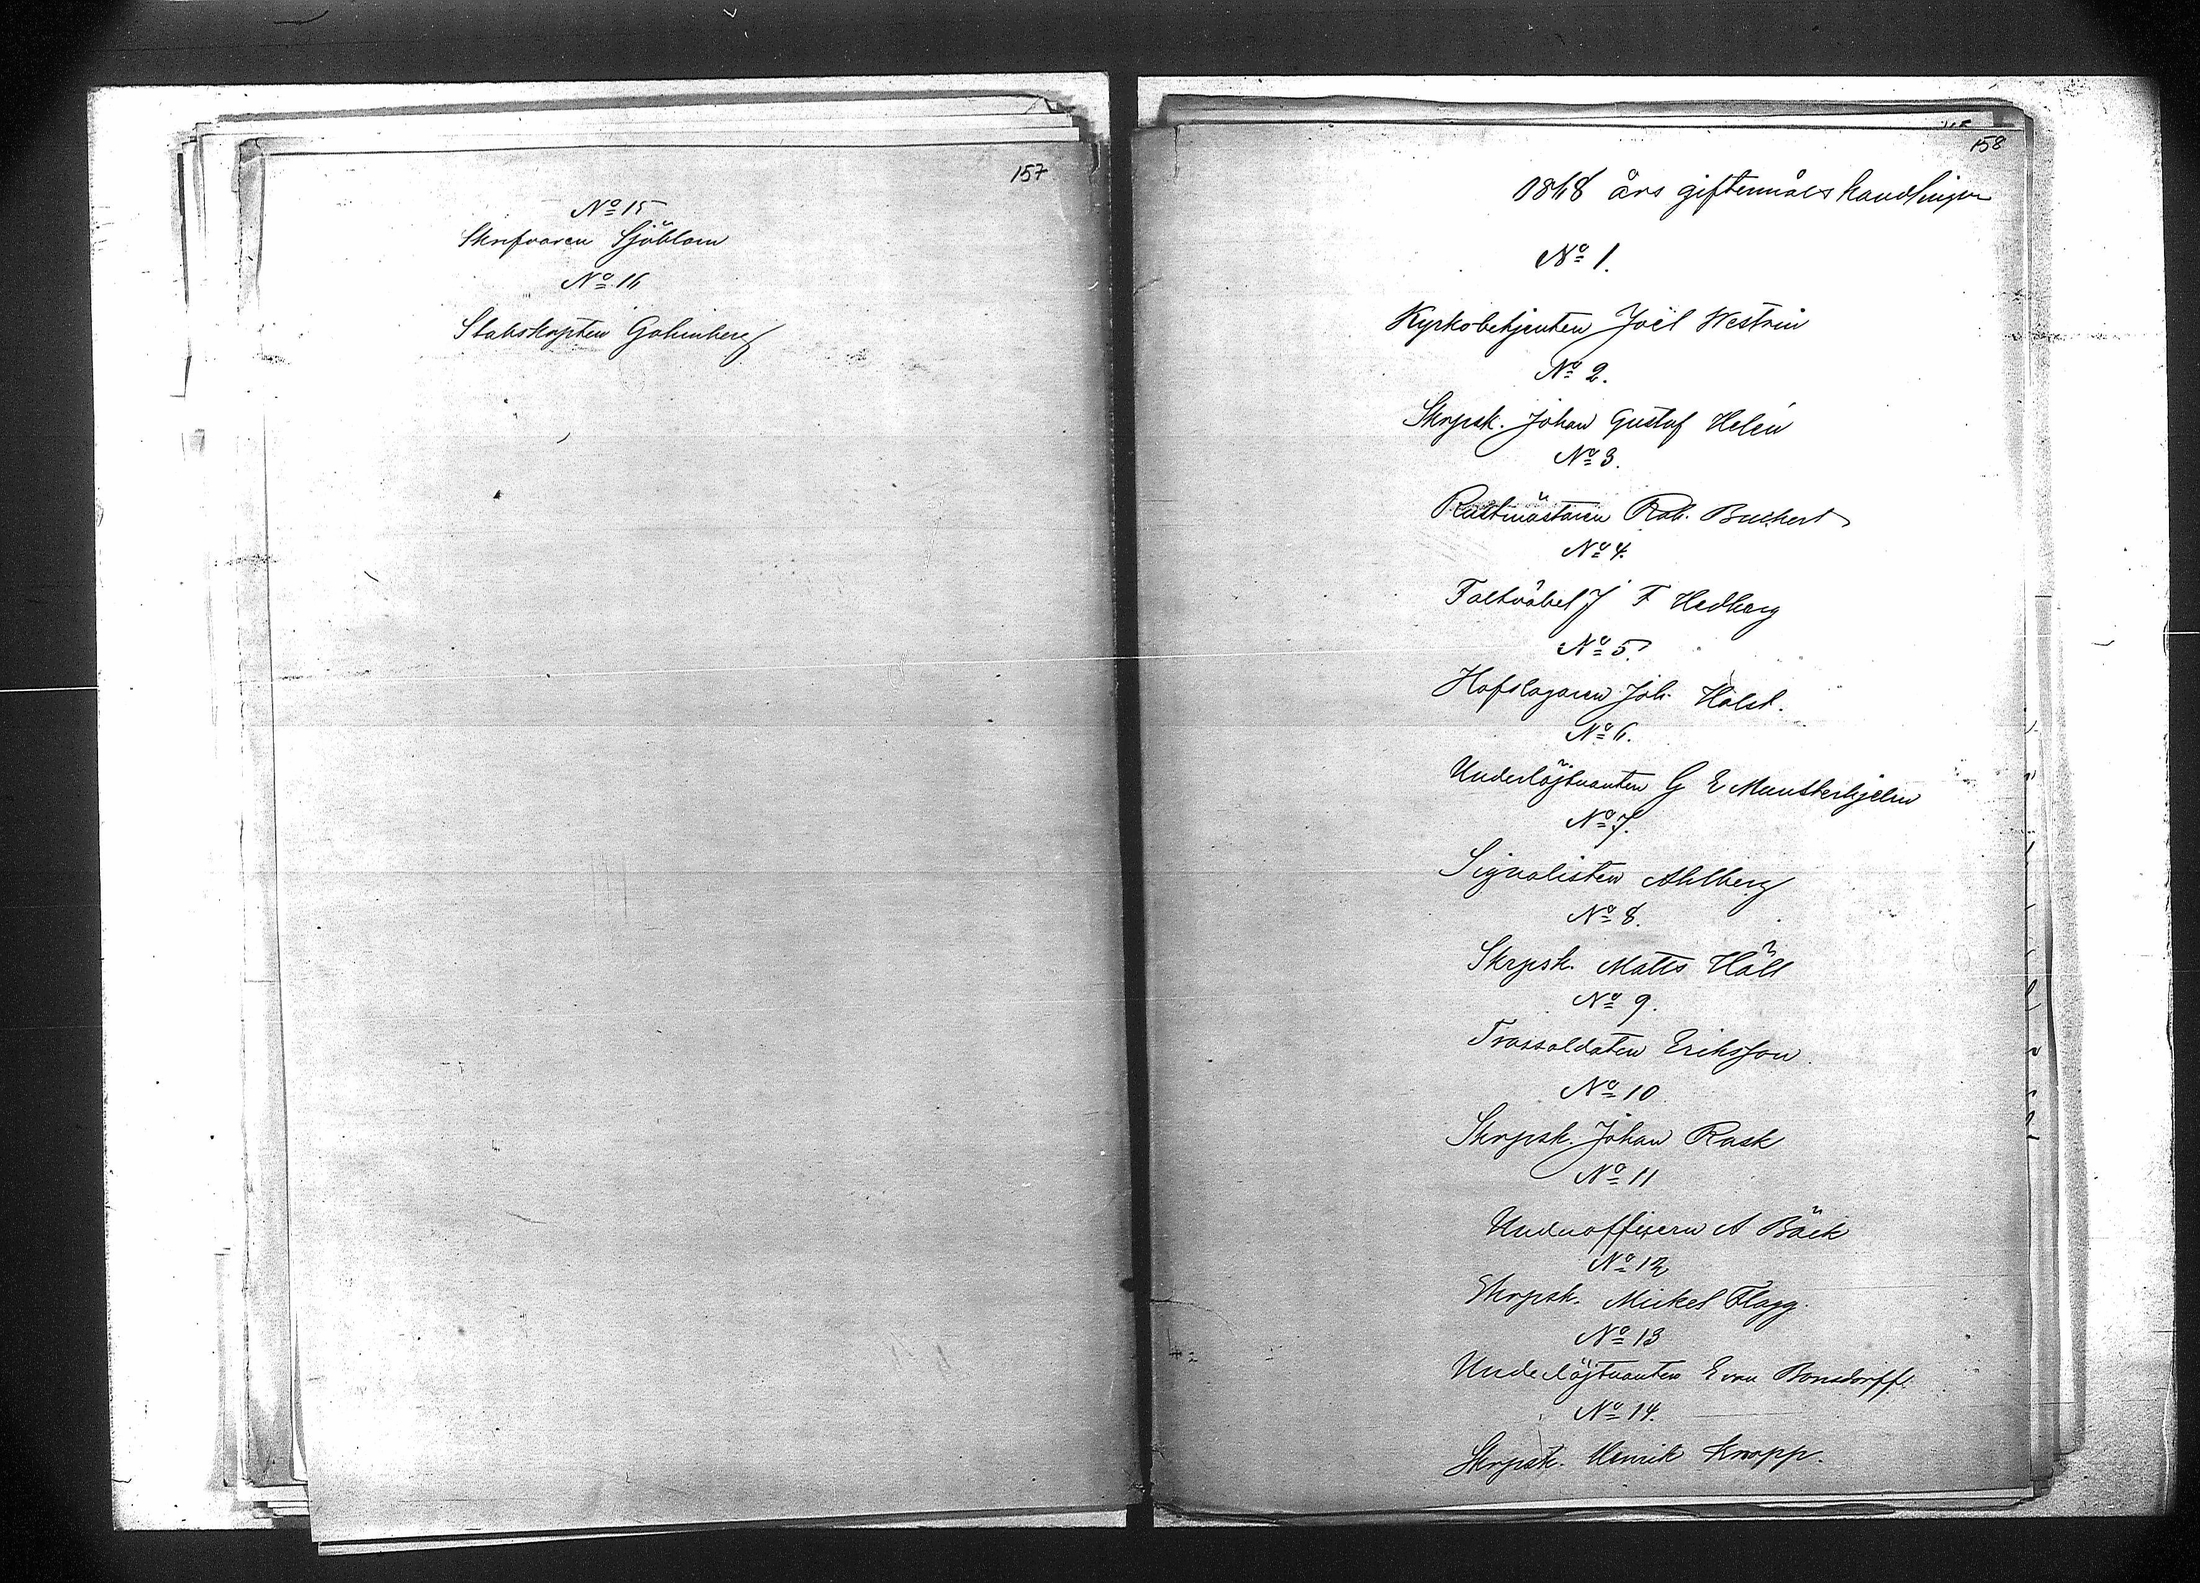 157
No 15
Skrifvaren Sjöblom
No 16
Stabskapten Gahmberg
158
1868 års giftermåls handlingar
No 1.
Kyrkobetjenten Joël Westrin
No 2.
Skrpsk. Johan Gustaf Helén
No 3.
Rustmästaren Rob. Buchert
No 4.
Faltväbel J F Hedberg
No 5.
Hofslagaren Joh. Holst.
No 6.
Underlöjtnanten G E Munsterhjelm
No 7.
Signalisten Ahlberg
No 8.
Skrpsk. Matts Häll
No 9.
Trossoldaten Eriksson
No 10
Skrpsk. Johan Rask
No 11
Underofficern A Bäck
No 12
Skrpsk. Mickel Flagg.
No 13
Underlöjtnanten E von Bonsdorff.
No 14.
Skrpsk. Henrik Knapp.